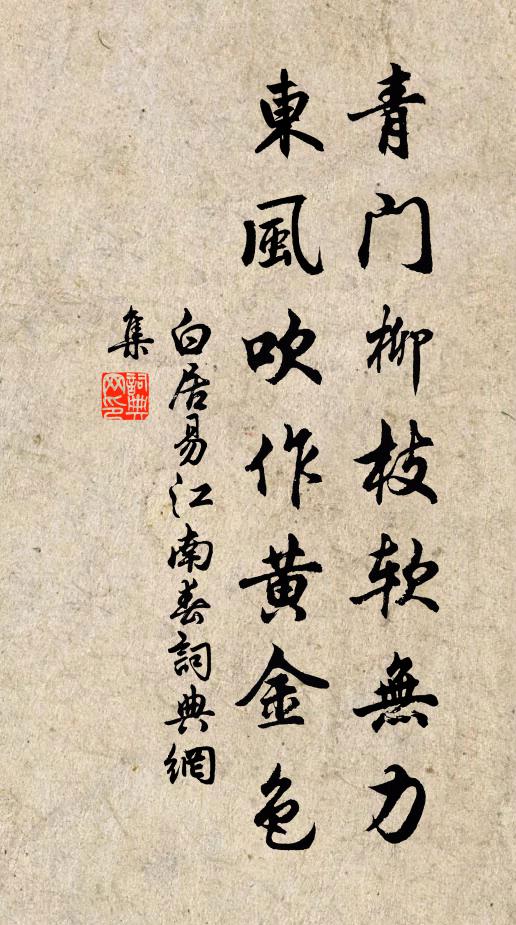 青門柳枝软無力
東風吹作黄金色
白居易江南春詞典網
集
詞典
网印